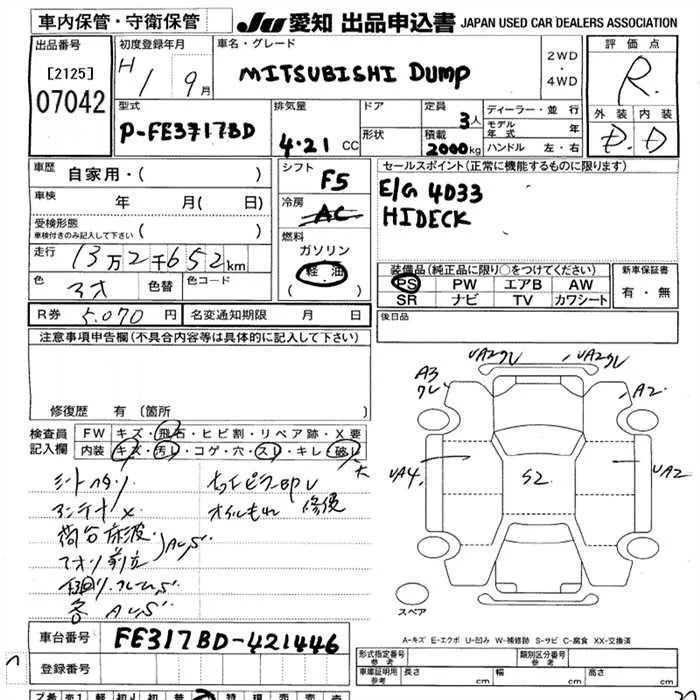 車内保管・守衛保管 JU 愛知 出品申込書 JAPAN USED CAR DEALERS ASSOCIATION
出品番号 初度登録年月 車名・グレード 評価点
[2125] H1 9月 MITSUBISHI DUMP 2WD・4WD R
07042 外装 内装
型式 排気量 ドア 定員 3人 ディーラー・並行
P-FE317BD 4.21 CC 形状 積載 2000kg モデル年式 年 D.D
ハンドル 左・右
車歴 自家用・( ) シフト F5 セールスポイント(正常に機能するものに限ります)
車検 年 月( 日) 冷房 AC E/G 4D33
受検形態 車検付きのみ記入して下さい ( ) HIDECK
走行 13万2千652km 燃料 ガソリン
色 アオ 色替 色コード 軽・油 ( ) 装備品(純正品に限り○をつけてください) 新車保証書
PS PW エアB AW 有・無
SR ナビ TV カワシート
R券 5,070 円 名変通知期限 月 日 後日品
注意事項申告欄(不具合内容等は具体的に記入して下さい)
修復歴 有 (箇所
検査員記入欄 FW キズ・飛石・ヒビ割・リペア跡・X要
内装 キズ・汚レ・コゲ・穴・スレ・キレ・破レ 大
オイルもれ 修復
荷台床波
アオリ
A3 UA2 UA2 A2
UA4 S2 UA2
スペア
A-キズ E-エクボ U-凹み W-補修跡 S-サビ C-腐食 XX-交換済
車台番号 FE317BD-421446
登録番号 形式指定番号 参考 類別区分番号 参考
車庫証明用 参考 長さ cm 幅 cm 高さ cm